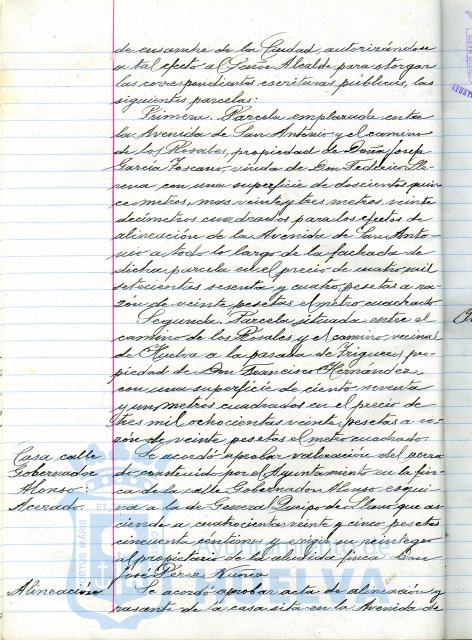 de ensanche de la Ciudad, autorizándose
a tal efecto al Señor Alcalde para otorgar
las correspondientes escrituras públicas, las
siguientes parcelas:
Primera. Parcela emplazada entre
la Avenida de San Antonio y el camino
de los Rosales, propiedad de Doña Josefa
García Toscano, viuda de Don Federico
con una superficie de doscientos quin
ce metros, mas veinte y tres metros veinte
decímetros cuadrados para los efectos de
alineación de la Avenida de San Anto-
nio a todo lo largo de la fachada de
dicha parcela en el precio de cuatro mil
setecientas sesenta y cuatro pesetas a ra-
zón de veinte pesetas el metro cuadrado.
Segunda. Parcela situada entre el
camino de los Rosales y el camino vecinal
de Huelva a la pasada de Trigueros, pro-
piedad de Don Francisco Hernandez,
con una superficie de ciento noventa
y un metros cuadrados en el precio de
tres mil ochocientas veinte pesetas a ra-
zón de veinte pesetas el metro cuadrado.
Casa calle
Gobernador
Alonso:
Acerado.
Se acordó aprobar valoración del acera-
do construido por el Ayuntamiento en la fin-
ca de la calle Gobernador Alonso esqui-
na a la de General Queipo de Llano que as-
ciende a cuatrocientas veinte y cinco pesetas
cincuenta céntimos y exigir su reintegro
al propietario de la aludida finca Don
José Pérez
Alineación
Se acordó aprobar acta de alineación y
rasante de la casa sita en la Avenida de
Ayuntamiento de
HUELVA